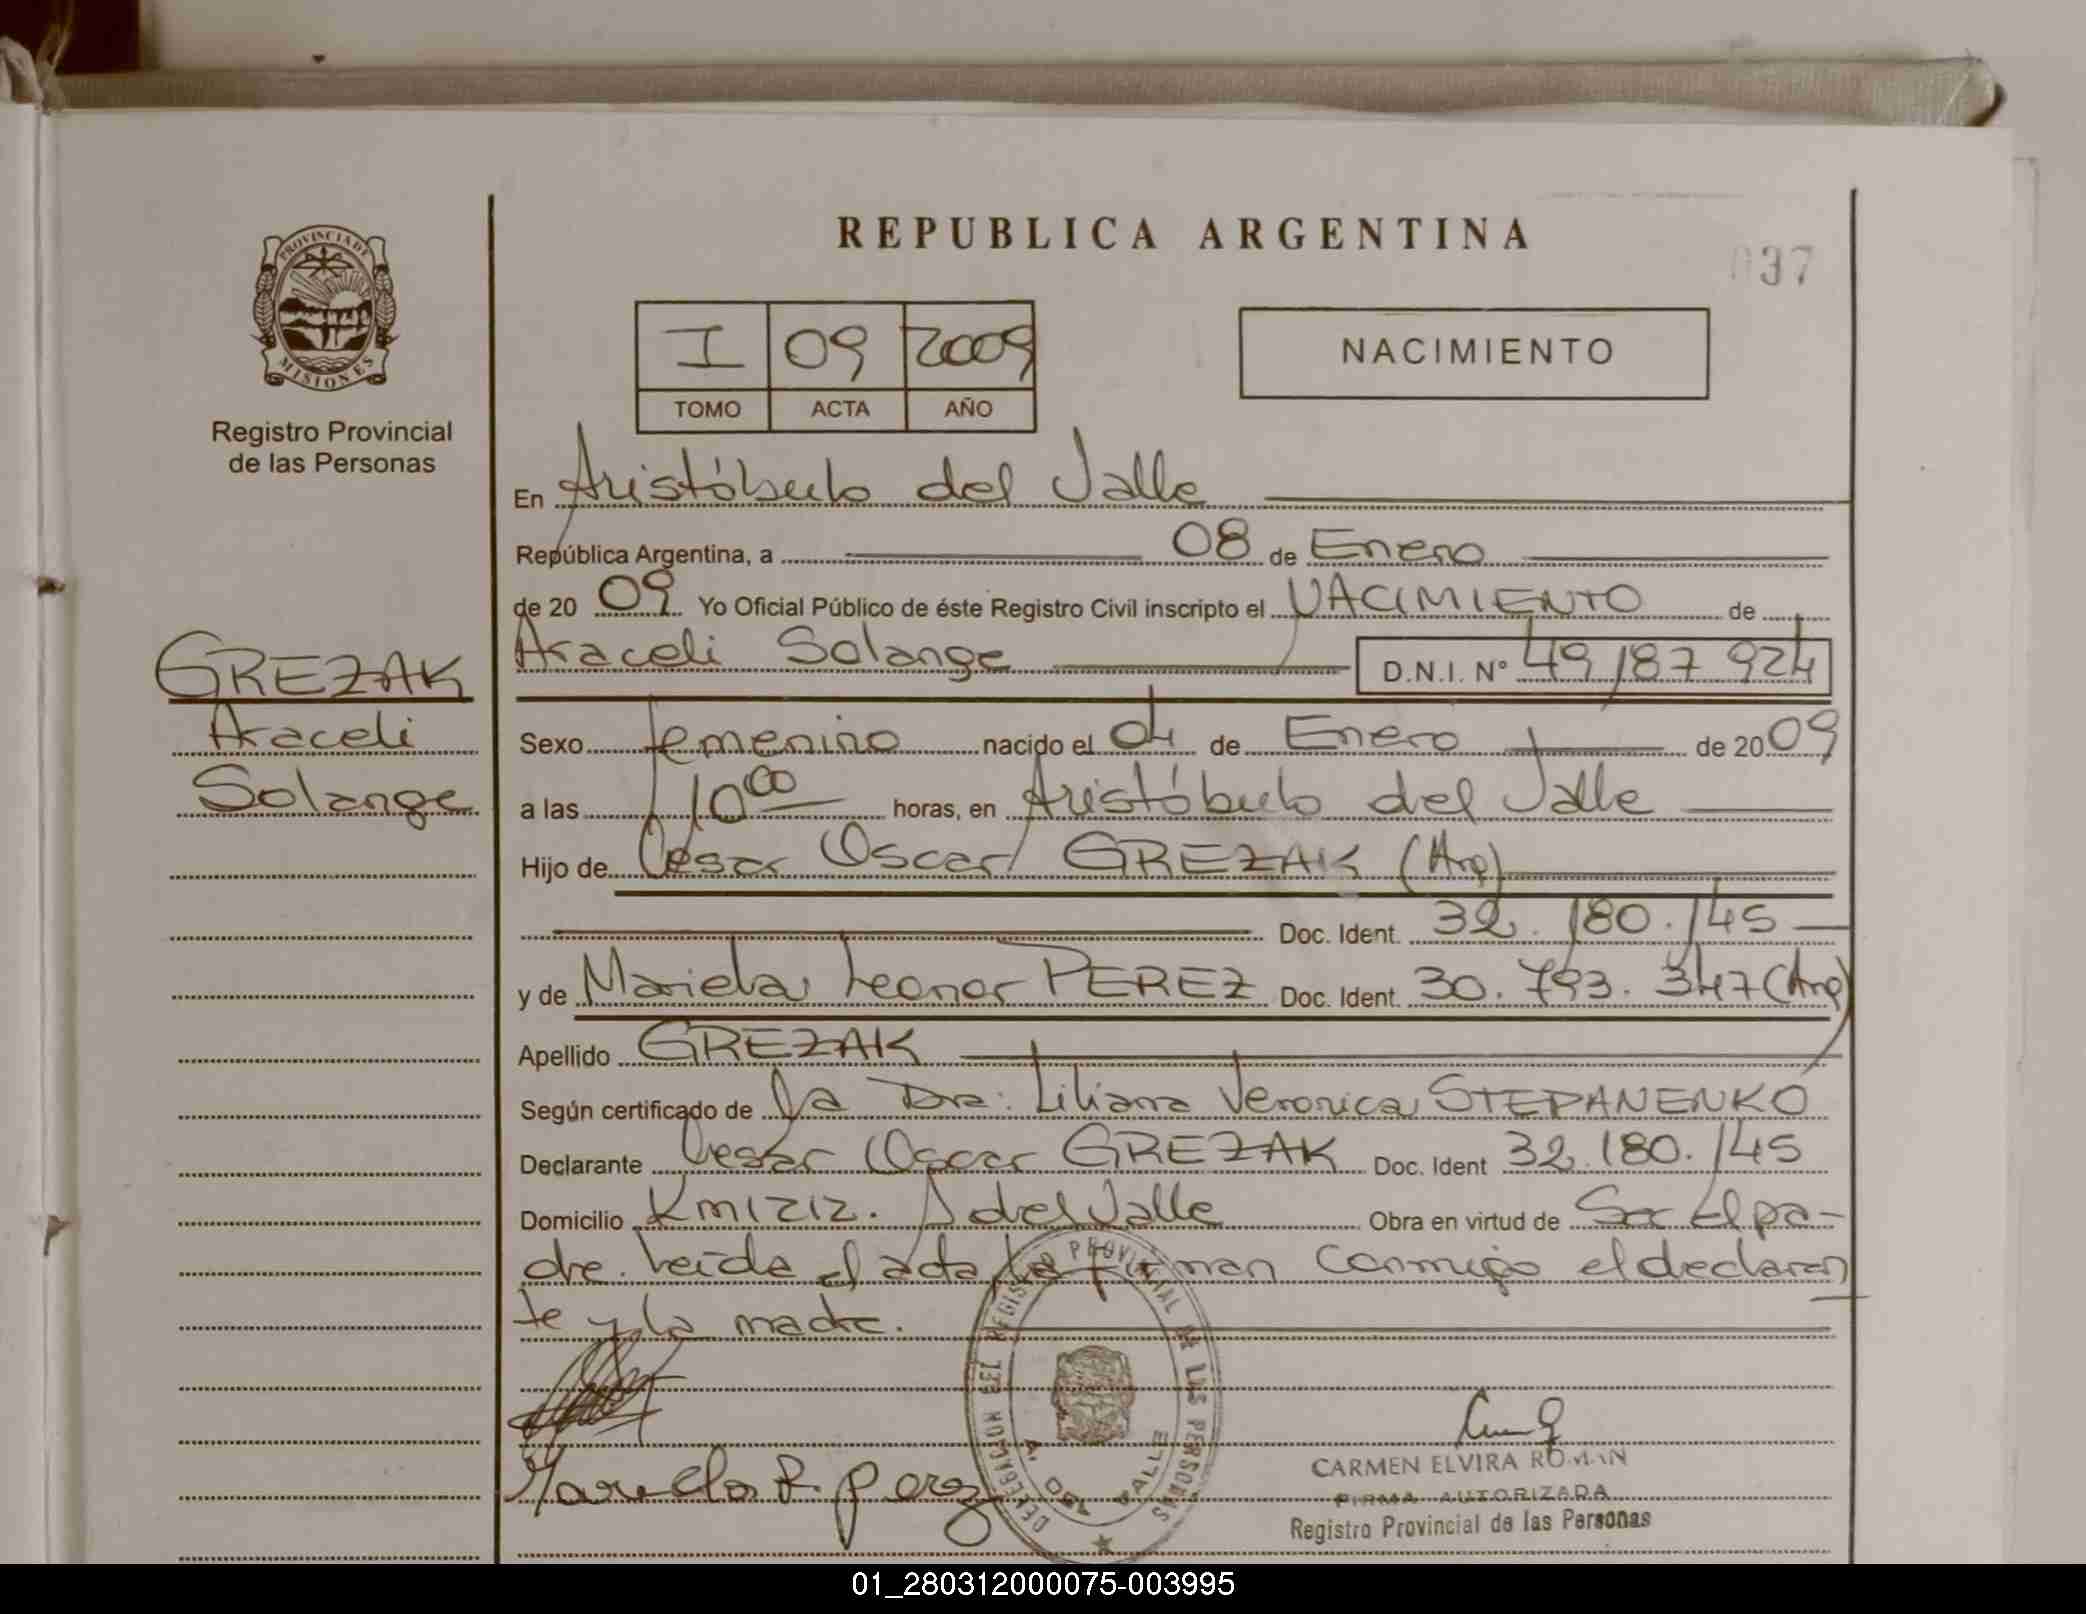 PROVINCIA DE
MISIONES
Registro Provincial
de las Personas
GREZAK
Araceli
Solange
REPUBLICA ARGENTINA
037
I 09 2009
TOMO ACTA AÑO
NACIMIENTO
En Aristóbulo del Valle
República Argentina, a 08 de Enero
de 20 09 Yo Oficial Público de éste Registro Civil inscripto el NACIMIENTO de
Araceli Solange D.N.I. Nº 49187924
Sexo femenino nacido el 04 de Enero de 2009
a las 10 00 horas, en Aristóbulo del Valle
Hijo de Cesar Oscar GREZAK (Arg)
Doc. Ident. 32.180.145
y de Mariela Leonor PEREZ Doc. Ident. 30.793.347 (Arg)
Apellido GREZAK
Según certificado de la Dra: Liliana Veronica STEPANENKO
Declarante Cesar Oscar GREZAK Doc. Ident 32.180.145
Domicilio Km 1212. A del Valle Obra en virtud de Ser El pa-
dre. Leída el acta la firman conmigo el declaran
te y la madre.
DELEGACION DEL REGISTRO PROVINCIAL DE LAS PERSONAS
A. DEL VALLE
CARMEN ELVIRA ROMAN
FIRMA AUTORIZADA
Registro Provincial de las Personas
01_280312000075-003995